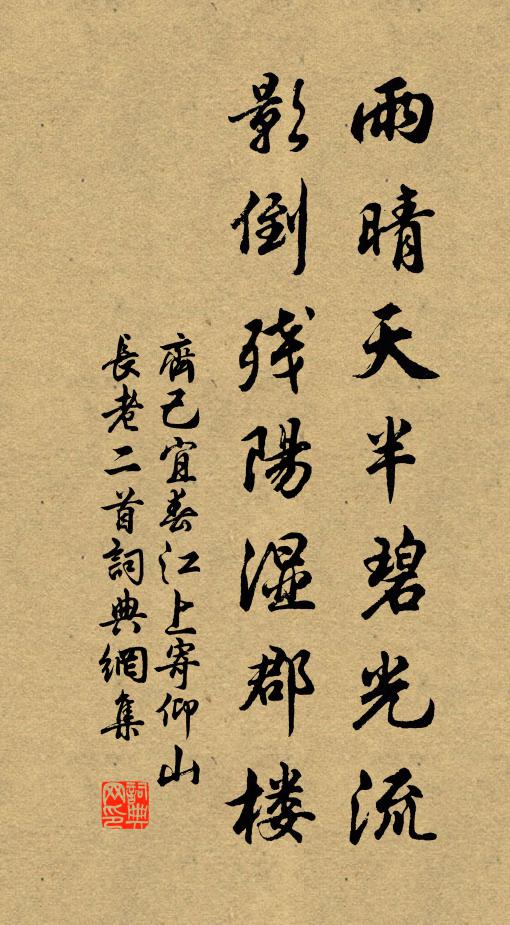 雨晴天半碧光流
影倒残陽湿郡楼
齊己宜春江上寄仰山
長老二首詞典網集
詞典
网印